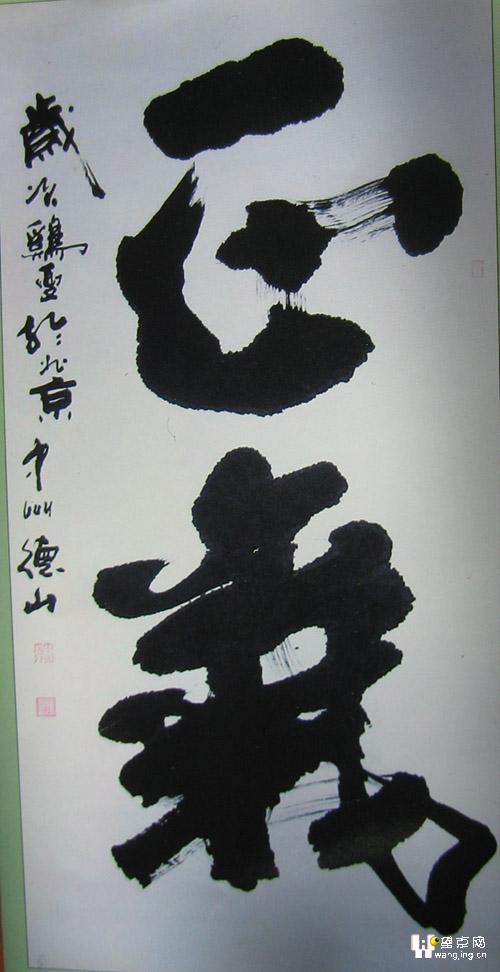 正義
歲次鷄
於北京中州德山
垄点网
wangjing.cn